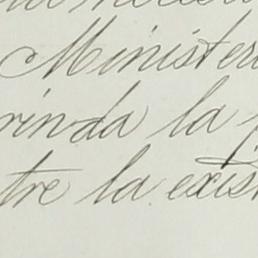 Ministeri
rinda la p
tre la exist